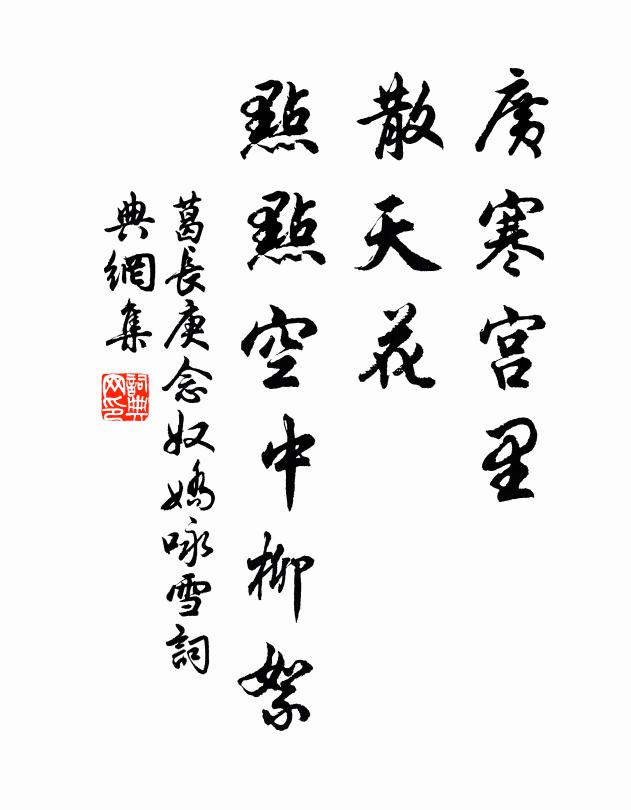 廣寒宫里
散天花
點點空中柳絮
葛長庚念奴嬌咏雪詞
典網集
詞典网印